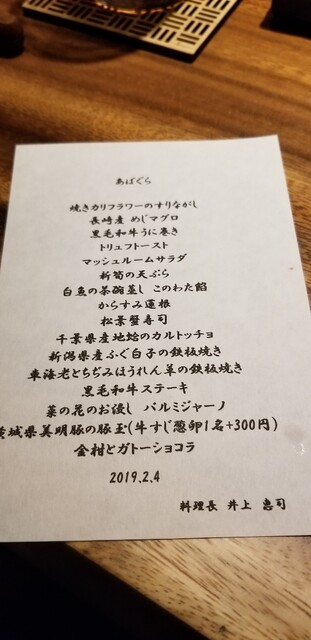 あばぐら
焼きカリフラワーのすりながし
長崎産 めじマグロ
黒毛和牛うに巻き
トリュフトースト
マッシュルームサラダ
新筍の天ぷら
白魚の茶碗蒸し このわた餡
からすみ蓮根
松葉蟹寿司
千葉県産地蛤のカルトッチョ
新潟県産ふぐ白子の鉄板焼き
車海老とちぢみほうれん草の鉄板焼き
黒毛和牛ステーキ
菜の花のお浸し パルミジャーノ
茨城県美明豚の豚玉(牛すじ葱卵1名+300円)
金柑とガトーショコラ
2019.2.4
料理長 井上 恵司